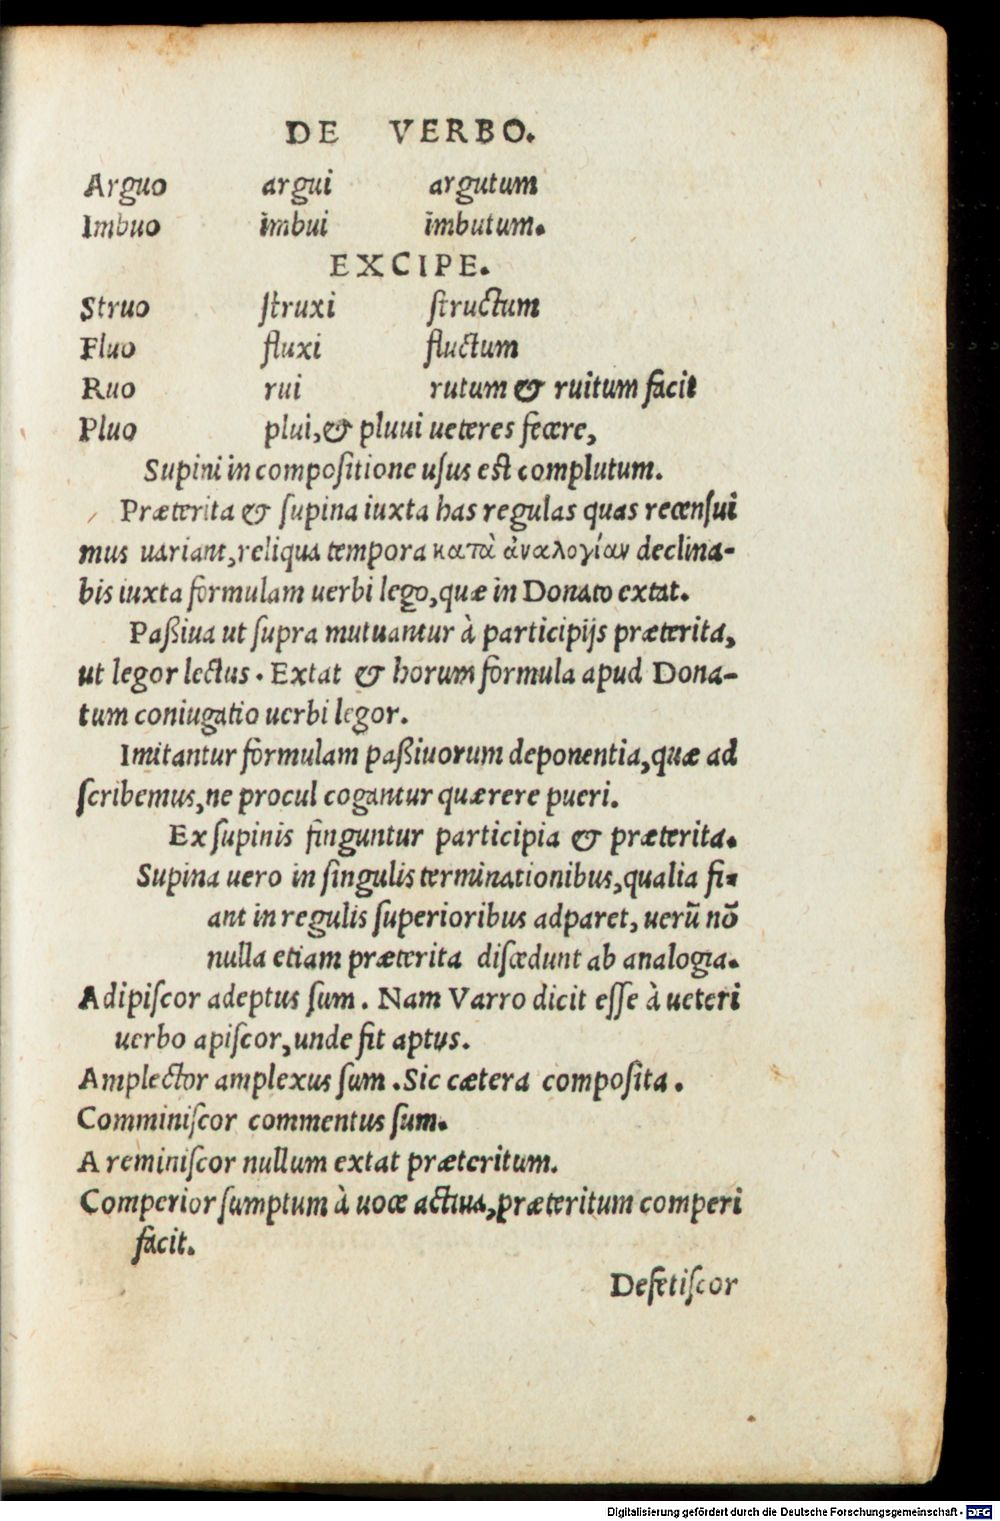 DE VERBO.
Arguo argui argutum
Imbuo imbui imbutum.
EXCIPE.
Struo ſtruxi ſtructum
Fluo fluxi fluctum
Ruo rui rutum & ruitum facit
Pluo plui,& pluui ueteres fecere,
Supini in compoſitione uſus eſt complutum.
Præterita & ſupina iuxta has regulas quas recenſui
mus uariant,reliqua tempora κατὰ ἀναλογίαν declina-
bis iuxta formulam uerbi lego,quæ in Donato extat.
Paßiua ut ſupra mutuantur à participijs præterita,
ut legor lectus. Extat & horum formula apud Dona-
tum coniugatio uerbi legor.
Imitantur formulam paßiuorum deponentia,quæ ad
ſcribemus,ne procul cogantur quærere pueri.
Ex ſupinis finguntur participia & præterita.
Supina uero in ſingulis terminationibus,qualia fi-
ant in regulis ſuperioribus adparet, uerũ nõ
nulla etiam præterita diſcedunt ab analogia.
Adipiſcor adeptus ſum. Nam Varro dicit eſſe à ueteri
uerbo apiſcor,unde fit aptus.
Amplector amplexus ſum.Sic cætera compoſita.
Comminiſcor commentus ſum.
A reminiſcor nullum extat præteritum.
Comperior ſumptum à uoce actiua,præteritum comperi
facit.
Defetiſcor
Digitalisierung gefördert durch die Deutsche Forschungsgemeinschaft - DFG